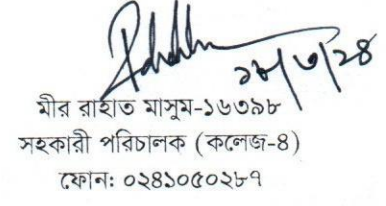 ১৮/৩/২৪
মীর রাহাত মাসুম-১৬৩৯৮
সহকারী পরিচালক (কলেজ-৪)
ফোন: ০২৪১০৫০২৮৭